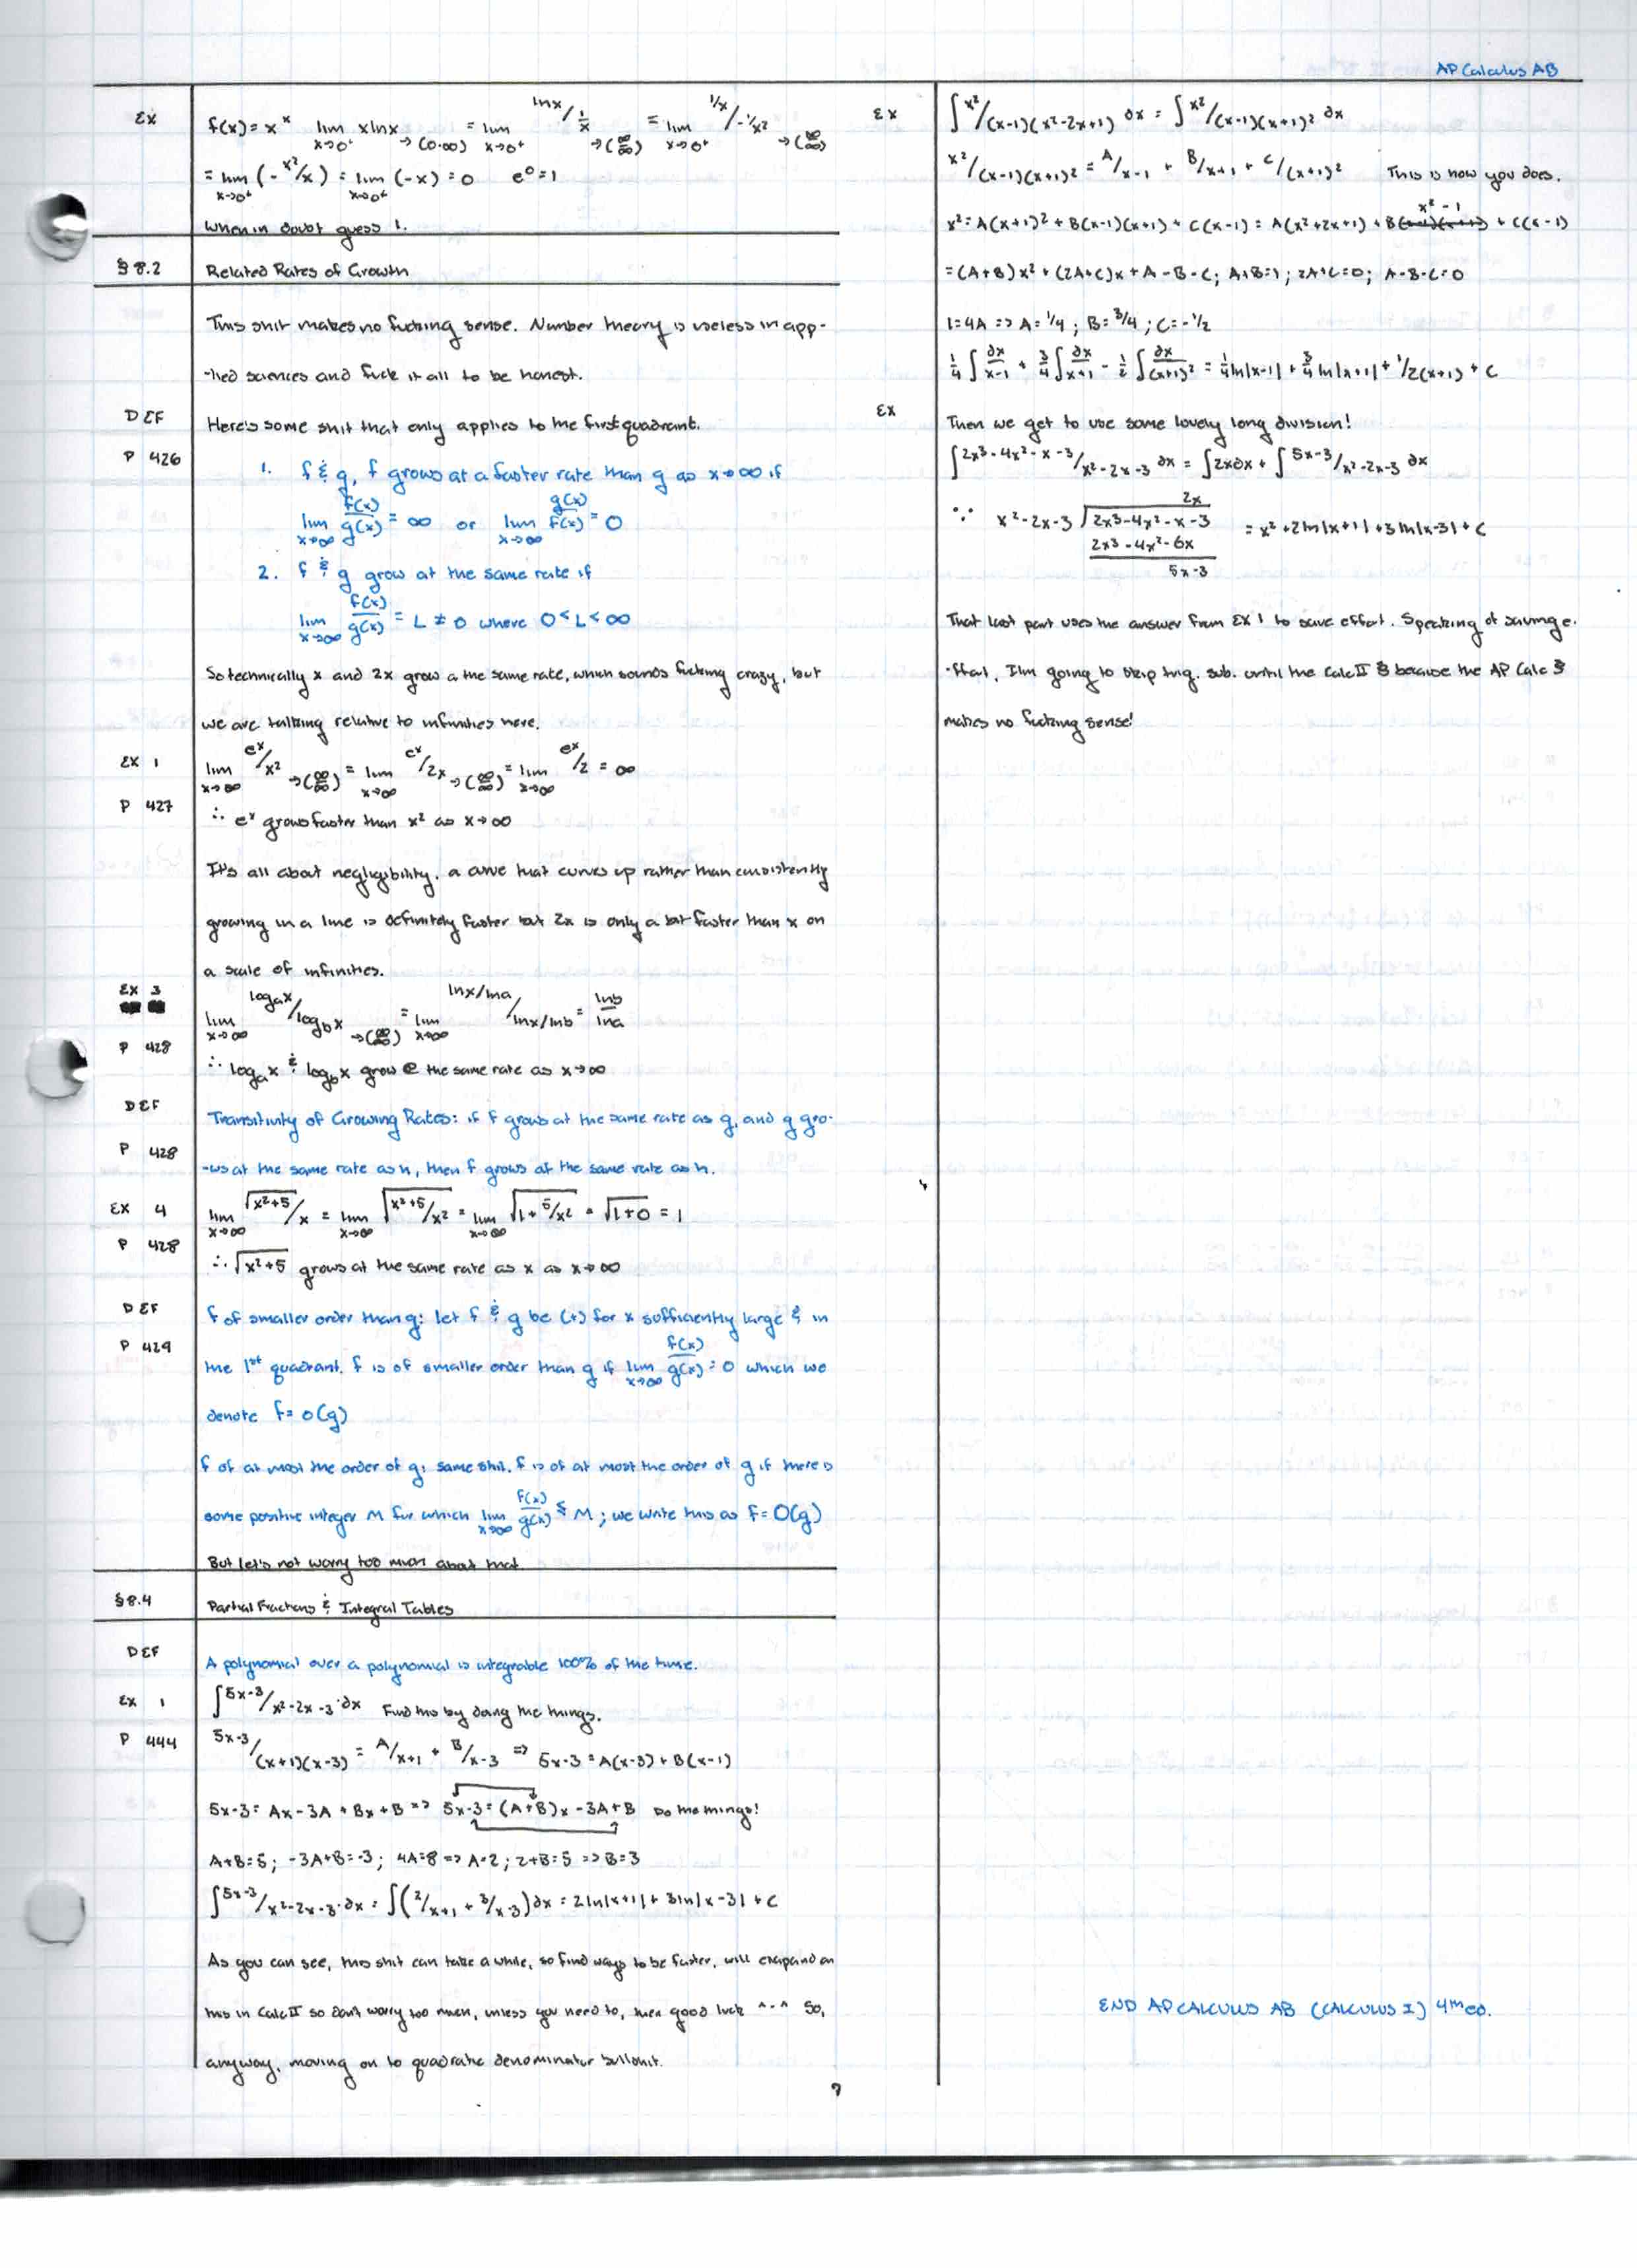 AP Calculus AB
EX
f(x) = x^x lim x→0⁺ xlnx →(0·∞) = lim x→0⁺ lnx / 1/x →(∞/∞) = lim x→0⁺ 1/x / -1/x² →(∞/∞)
= lim x→0⁺ (- x²/x) = lim x→0⁺ (-x) = 0 e⁰ = 1
When in doubt guess 1.
§ 8.2 Related Rates of Growth
This shit makes no fucking sense. Number theory is useless in app-
-lied sciences and fuck it all to be honest.
DEF Here's some shit that only applies to the first quadrant.
P 426
1. f & g, f grows at a faster rate than g as x→∞ if
lim x→∞ f(x)/g(x) = ∞ or lim x→∞ g(x)/f(x) = 0
2. f & g grow at the same rate if
lim x→∞ f(x)/g(x) = L ≠ 0 where 0 < L < ∞
So technically x and 2x grow a the same rate, which sounds fucking crazy, but
we are talking relative to infinities here.
EX 1
lim x→∞ e^x/x² →(∞/∞) = lim x→∞ e^x/2x →(∞/∞) = lim x→∞ e^x/2 = ∞
P 427
∴ e^x grows faster than x² as x→∞
It's all about negligibility. a curve that curves up rather than consistently
growing in a line is definitely faster but 2x is only a bit faster than x on
a scale of infinities.
EX 3
lim x→∞ logₐx/log_b x →(∞/∞) = lim x→∞ lnx/lna / lnx/lnb = lnb/lna
P 428
∴ logₐx & log_b x grow @ the same rate as x→∞
DEF Transitivity of Growing Rates: if f grows at the same rate as g, and g gro-
P 428 -ws at the same rate as h, then f grows at the same rate as h.
EX 4
lim x→∞ √(x²+5)/x = lim x→∞ √(x²+5/x²) = lim x→∞ √(1+5/x²) = √(1+0) = 1
P 428
∴ √(x²+5) grows at the same rate as x as x→∞
DEF f of smaller order than g: let f & g be (+) for x sufficiently large & in
P 429 the 1st quadrant. f is of smaller order than g if lim x→∞ f(x)/g(x) = 0 which we
denote f = o(g)
f of at most the order of g: same shit. f is of at most the order of g if there is
some positive integer M for which lim x→∞ f(x)/g(x) ≤ M; we write this as f = O(g)
But let's not worry too much about that
§8.4 Partial Fractions & Integral Tables
DEF A polynomial over a polynomial is integrable 100% of the time.
EX 1 ∫ 5x-3/x²-2x-3 ∂x Find this by doing the things.
P 444 5x-3/(x+1)(x-3) = A/x+1 + B/x-3 => 5x-3 = A(x-3) + B(x-1)
5x-3 = Ax-3A + Bx+B => 5x-3 = (A+B)x -3A+B Do the things!
A+B=5; -3A+B=-3; 4A=8 => A=2; 2+B=5 => B=3
∫ 5x-3/x²-2x-3 ∂x = ∫(2/x+1 + 3/x-3)∂x = 2ln|x+1| + 3ln|x-3| + C
As you can see, this shit can take a while, so find ways to be faster, will exapand on
this in Calc II so don't worry too much, unless you need to, then good luck ^-^ So,
anyway, moving on to quadratic denominator bullshit.
EX
∫ x²/(x-1)(x²-2x+1) ∂x = ∫ x²/(x-1)(x+1)² ∂x
x²/(x-1)(x+1)² = A/x-1 + B/x+1 + C/(x+1)² This is how you does.
x² = A(x+1)² + B(x-1)(x+1) + C(x-1) = A(x²+2x+1) + B x²-1 + C(x-1)
= (A+B)x² + (2A+C)x + A-B-C; A+B=1; 2A+C=0; A-B-C=0
1=4A => A=1/4; B=3/4; C=-1/2
1/4 ∫ ∂x/x-1 + 3/4 ∫ ∂x/x+1 - 1/2 ∫ ∂x/(x+1)² = 1/4 ln|x-1| + 3/4 ln|x+1| + 1/2(x+1) + C
EX Then we get to use some lovely long division!
∫ 2x³-4x²-x-3/x²-2x-3 ∂x = ∫2x∂x + ∫ 5x-3/x²-2x-3 ∂x
2x
∵ x²-2x-3 2x³-4x²-x-3 = x² + 2ln|x+1| + 3ln|x-3| + C
2x³-4x²-6x
5x-3
That last part uses the answer from EX 1 to save effort. Speaking of saving e-
-ffort, I'm going to skip trig. sub. until the Calc II § because the AP Calc §
makes no fucking sense!
END AP CALCULUS AB (CALCULUS I) 4th ed.